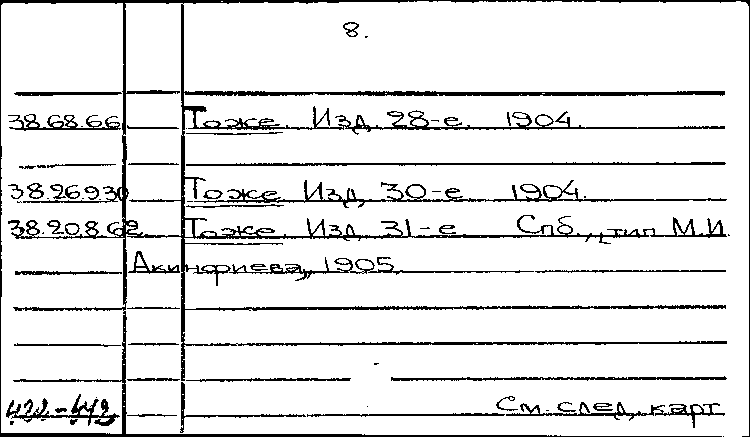 8.
38.68.66 Тоже. Изд. 28-е. 1904.
38.26.930 Тоже Изд. 30-е 1904.
38.20.8.62. Тоже. Изд. 31-е. Спб., тип М.И
Акинфиева, 1905.
См. след. карт